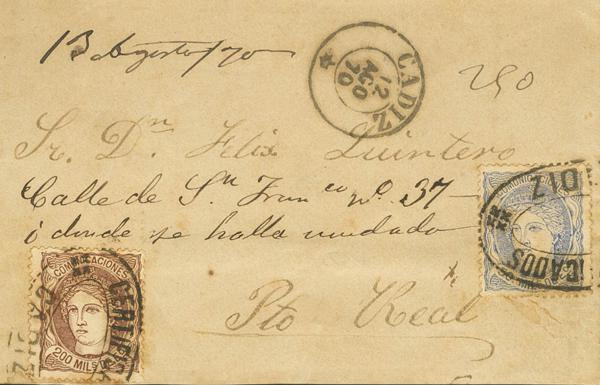 13 Agosto/70
CADIZ
12
AGO
70
250
Sr. Dn. Felix Quintero
Calle de Sn. Franco no. 37
ó donde se halla mudado
Pto Real
COMUNICACIONES
200 MILS
CERTIFICADO
COMUNICACIONES
DIZ
ICADOS